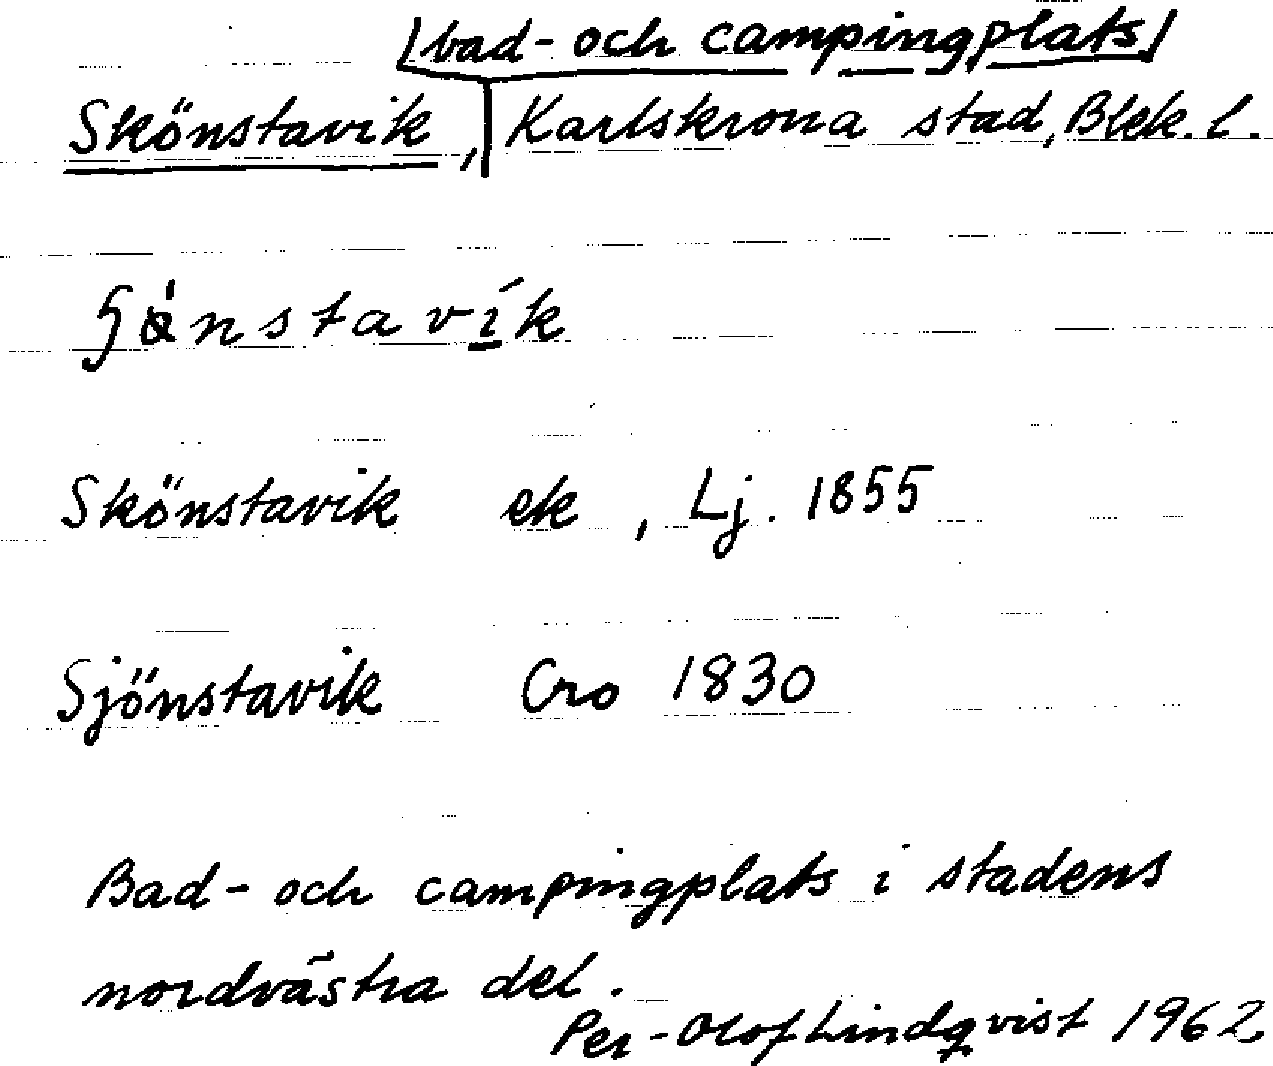 /bad- och campingplats/
Skönstavik, Karlskrona stad, Blek. l.
Skönstavik ek, Lj. 1855
Sjönstavik Cro 1830
Bad- och campingplats i stadens
nordvästra del.
Per-Olof Lindqvist 1962